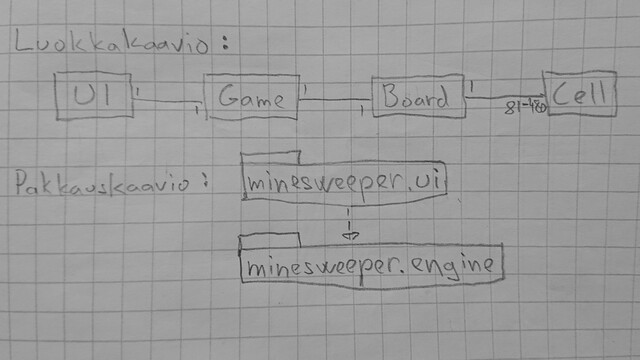 Luokkakaavio:
UI 1 1 Game 1 1 Board 1 81-480 Cell
Pakkauskaavio: minesweeper.ui
minesweeper.engine